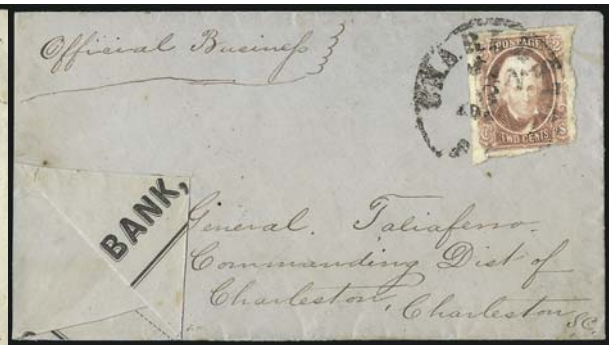 Official Business
POSTAGE
TWO CENTS
BANK,
General. Taliaferro.
Commanding Dist of
Charleston, Charleston
SC.